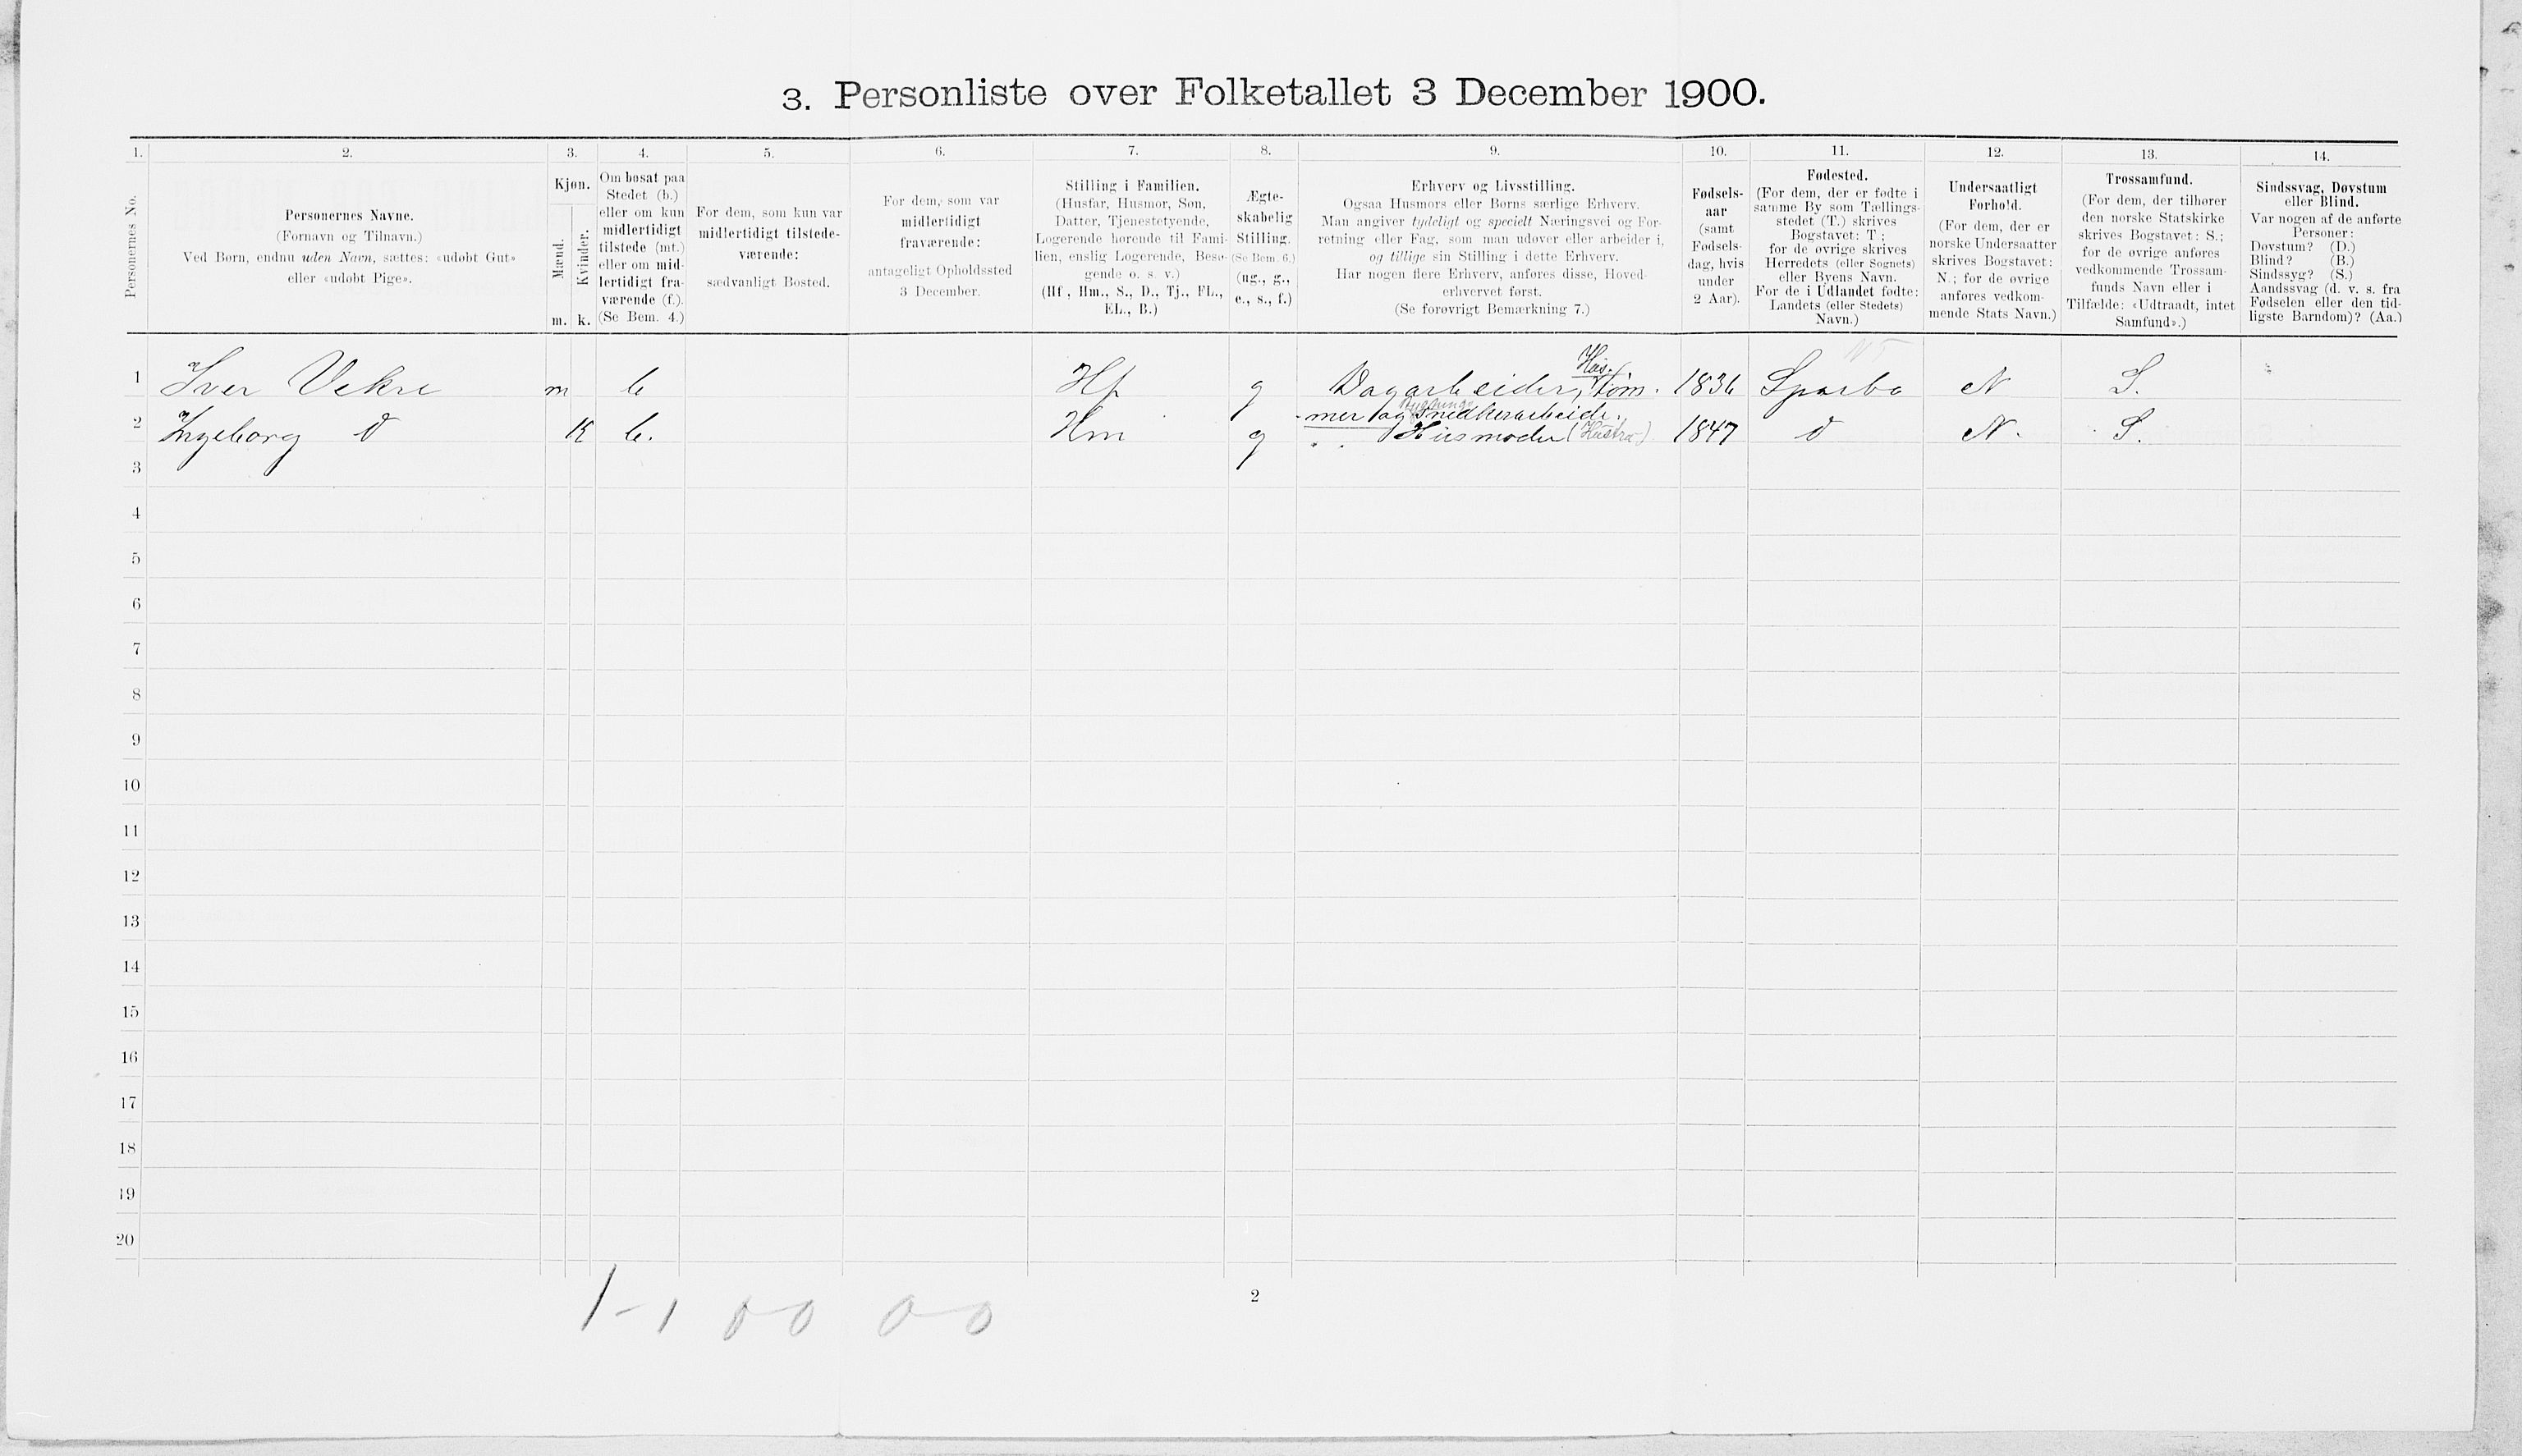 3. Personliste over Folketallet 3 December 1900.
1. 2. 3. 4. 5. 6. 7. 8. 9. 10. 11. 12. 13. 14.
Personernes No.
Personernes Navne.
(Fornavn og Tilnavn.)
Ved Børn, endnu uden Navn, sættes: «udøbt Gut»
eller «udøbt Pige».
Kjøn.
Mænd.
Kvinder.
m. k.
Om bosat paa
Stedet (b.)
eller om kun
midlertidigt
tilstede (mt.)
eller om mid-
lertidigt fra-
værende (f.).
(Se Bem. 4.)
For dem, som kun var
midlertidigt tilstede-
værende:
sædvanligt Bosted.
For dem, som var
midlertidigt
fraværende:
antageligt Opholdssted
3 December.
Stilling i Familien.
(Husfar, Husmor, Søn,
Datter, Tjenestetyende,
Logerende hørende til Fami-
lien, enslig Logerende, Besø-
gende o. s. v.)
(Hf, Hm., S., D., Tj., FL.,
EL., B.)
Ægte-
skabelig
Stilling.
(Se Bem. 6.)
(ug., g.,
e., s., f.)
Erhverv og Livsstilling.
Ogsaa Husmors eller Børns særlige Erhverv.
Man angiver tydeligt og specielt Næringsvei og For-
retning eller Fag, som man udøver eller arbeider i,
og tillige sin Stilling i dette Erhverv.
Har nogen flere Erhverv, anføres disse, Hoved-
erhvervet først.
(Se forøvrigt Bemærkning 7.)
Fødsels-
aar
(samt
Fødsels-
dag, hvis
under
2 Aar).
Fødested.
(For dem, der er fødte i
samme By som Tællings-
stedet (T.) skrives
Bogstavet: T;
for de øvrige skrives
Herredets (eller Sognets)
eller Byens Navn.
For de i Udlandet fødte:
Landets (eller Stedets)
Navn.)
Undersaatligt
Forhold.
(For dem, der er
norske Undersaatter
skrives Bogstavet:
N.; for de øvrige
anføres vedkom-
mende Stats Navn.)
Trossamfund.
(For dem, der tilhører
den norske Statskirke
skrives Bogstavet: S.;
for de øvrige anføres
vedkommende Trossam-
funds Navn eller i
Tilfælde: «Udtraadt, intet
Samfund».)
Sindssvag, Døvstum
eller Blind.
Var nogen af de anførte
Personer:
Døvstum? (D.)
Blind? (B.)
Sindssyg? (S.)
Aandssvag (d. v. s. fra
Fødselen eller den tid-
ligste Barndom)? (Aa.)
NT
Hus.
1 Iver Vekre m b Hf g Dagarbeider, Tøm- 1836 Sparbo N S.
Bygnings
mer og Snedkerarbeide.
2 Ingeborg d K b. Hm g .. Husmoder (Hustru) 1847 d N. S.
3
4
5
6
7
8
9
10
11
12
13
14
15
16
17
18
19
20
1-1 0 0 0-0
2